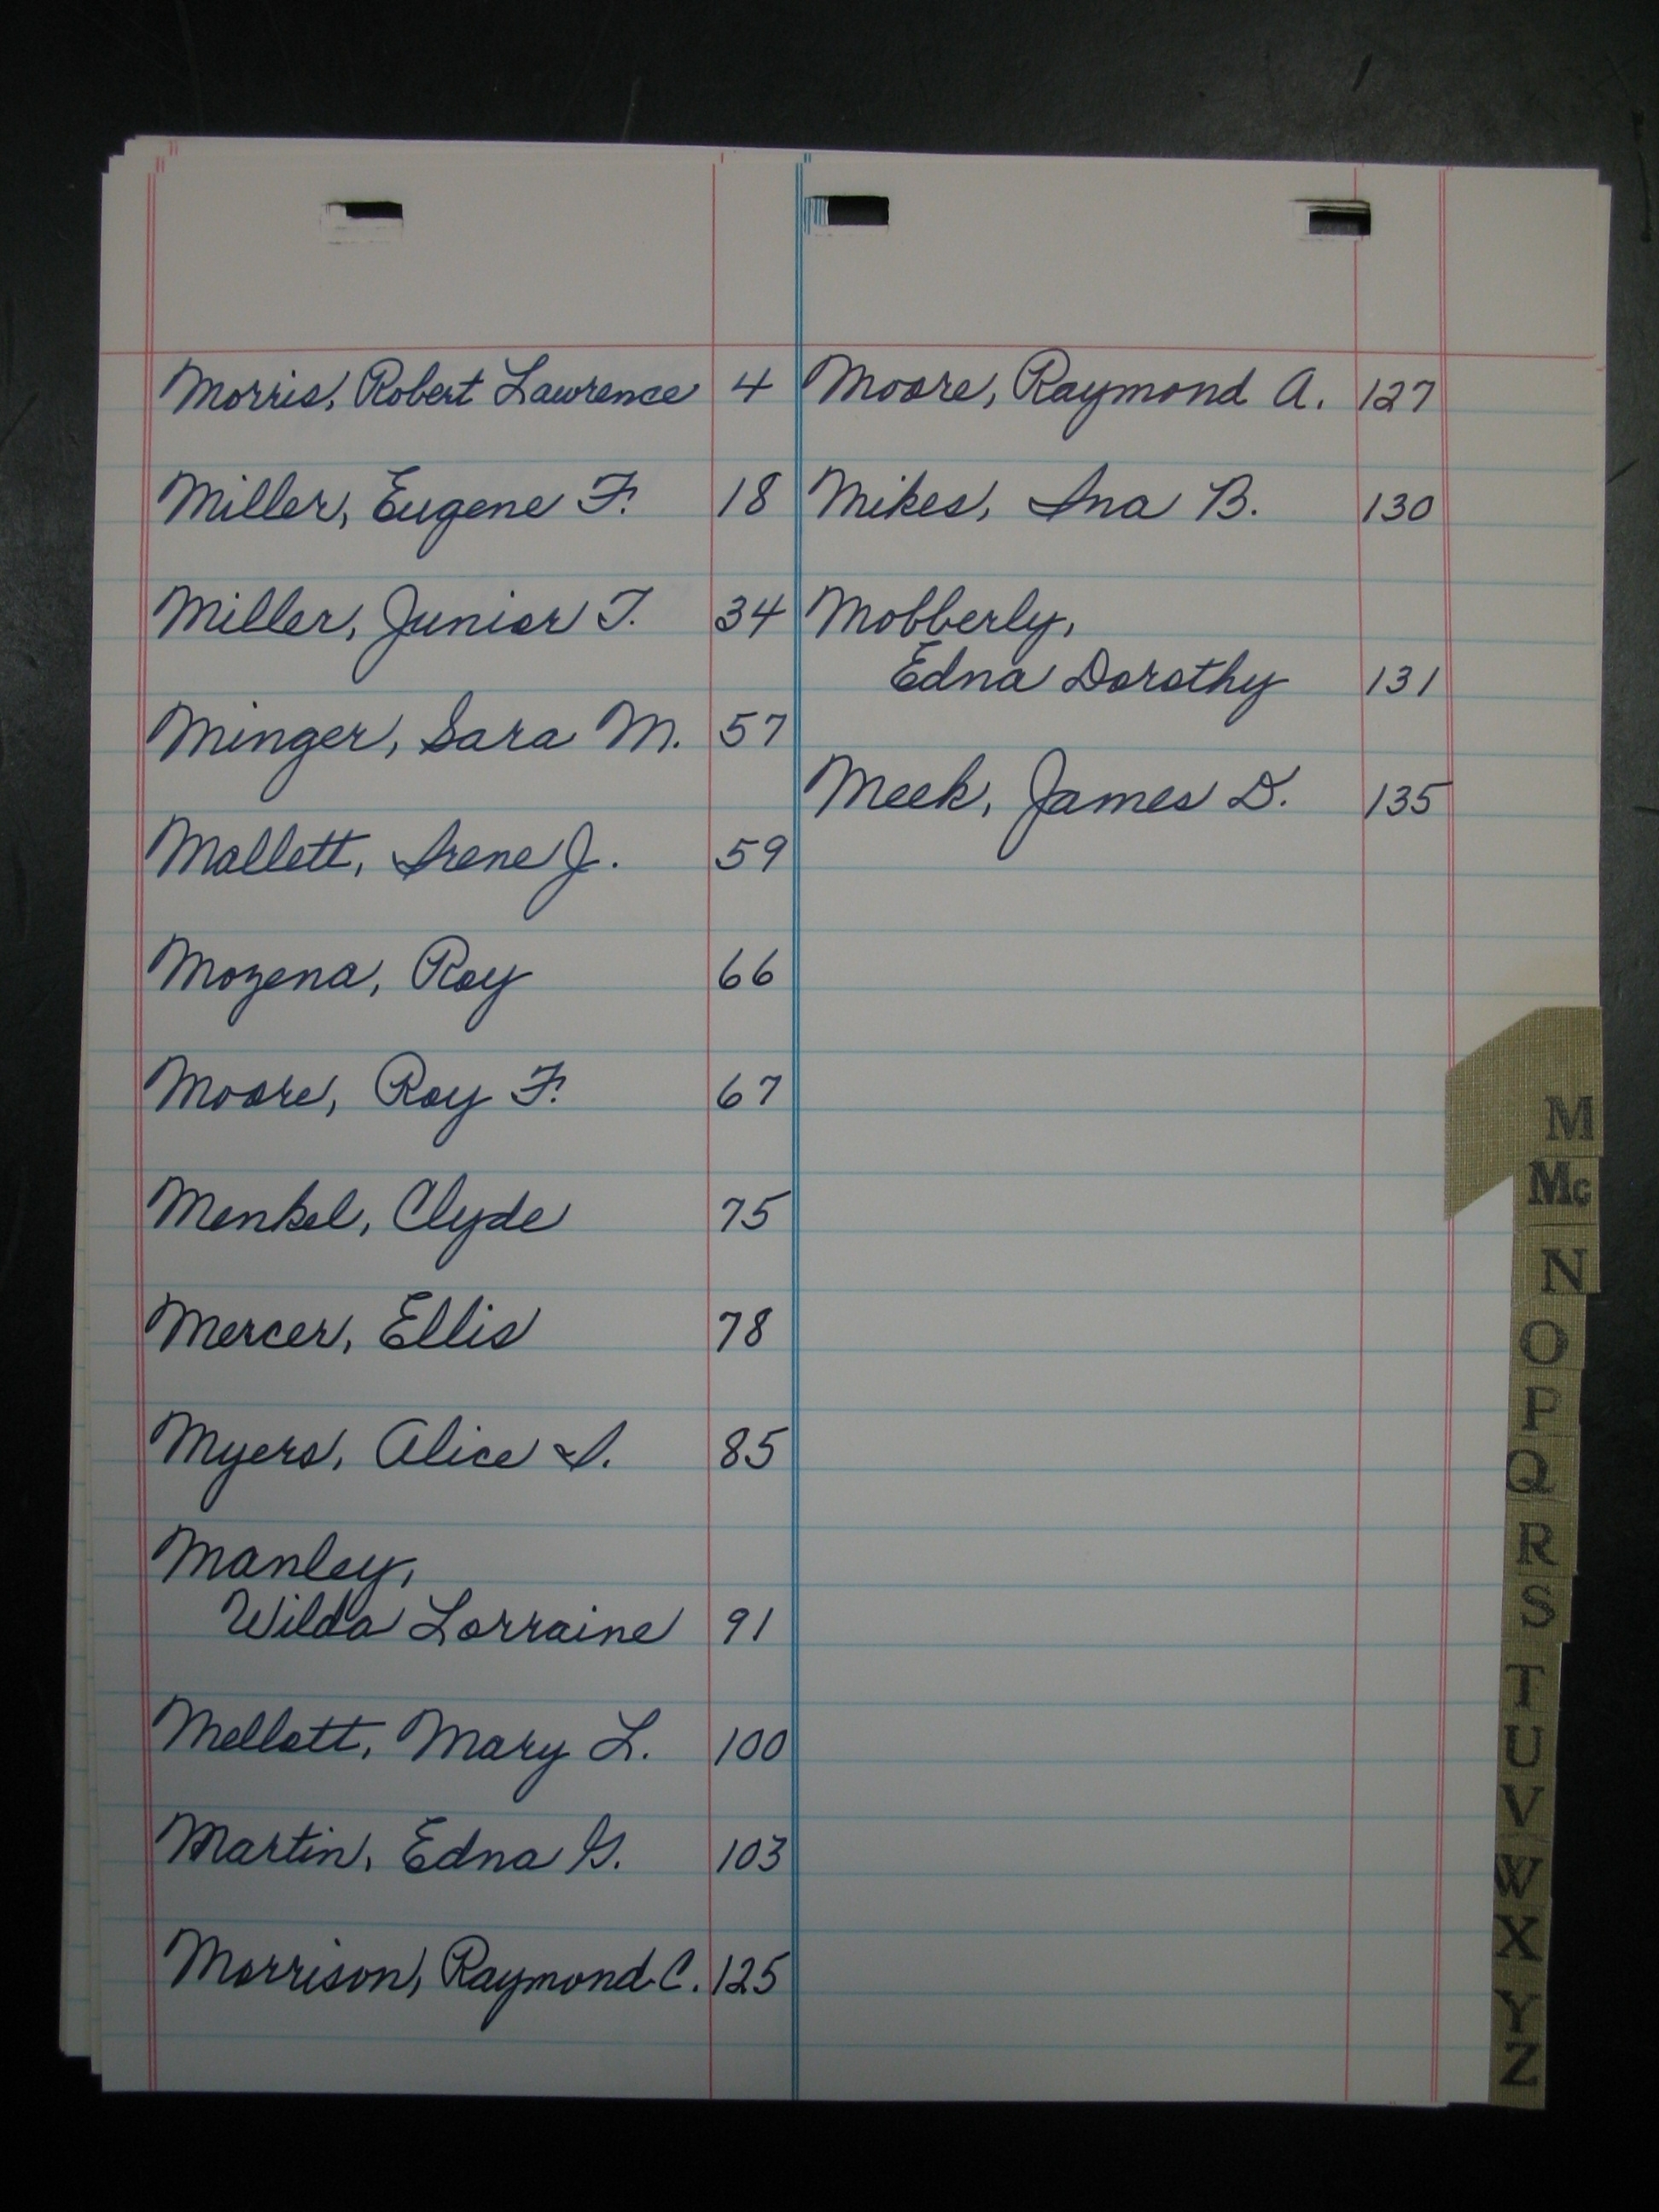 Morris, Robert Lawrence 4
Miller, Eugene F. 18
Miller, Junior T. 34
Minger, Sara M. 57
Mallett, Irene J. 59
Mozena, Roy 66
Moore, Roy F. 67
Menkel, Clyde 75
Mercer, Ellis 78
Myers, Alice I. 85
Manley,
Wilda Lorraine 91
Mellott, Mary L. 100
Martin, Edna G. 103
Morrison, Raymond C. 125
Moore, Raymond A. 127
Mikes, Ina B. 130
Mobberly,
Edna Dorothy 131
Meek, James D. 135
M
Mc
N
O
P
Q
R
S
T
U
V
W
X
Y
Z